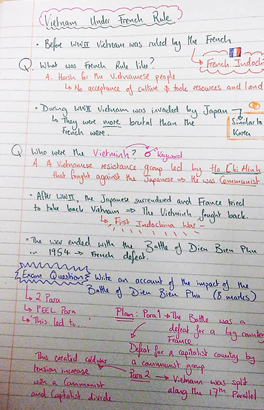 Vietnam Under French Rule
• Before WWII Vietnam was ruled by the French
French Indochi
Q. What was French Rule like?
A. Harsh for the Vietnamese people
↳ No acceptance of culture & took resources and land
• During WWII Vietnam was invaded by Japan
↳ They were more brutal than the
French were.
Similar to
Korea
Q. Who were the Vietminh? Keyword
A. A Vietnamese resistance group led by Ho Chi Minh
that fought against the Japanese → He was Communist
• After WWII, the Japanese surrendered and France tried
to take back Vietnam → The Vietminh fought back.
↳ First Indochina War
• The war ended with the Battle of Dien Bien Phu
in 1954 → French defeat.
Exam Question: Write an account of the impact of the
Battle of Dien Bien Phu (8 marks)
↳ 2 Para
↳ PEEL Para
↳ This led to..
Plan: Para 1 → The Battle was a
defeat for a big country
France
Defeat for a capitalist country by
a communist group
Para 2 → Vietnam was split
along the 17th Parallel
This created cold war
tension increase
with a Communist
and Capitalist divide